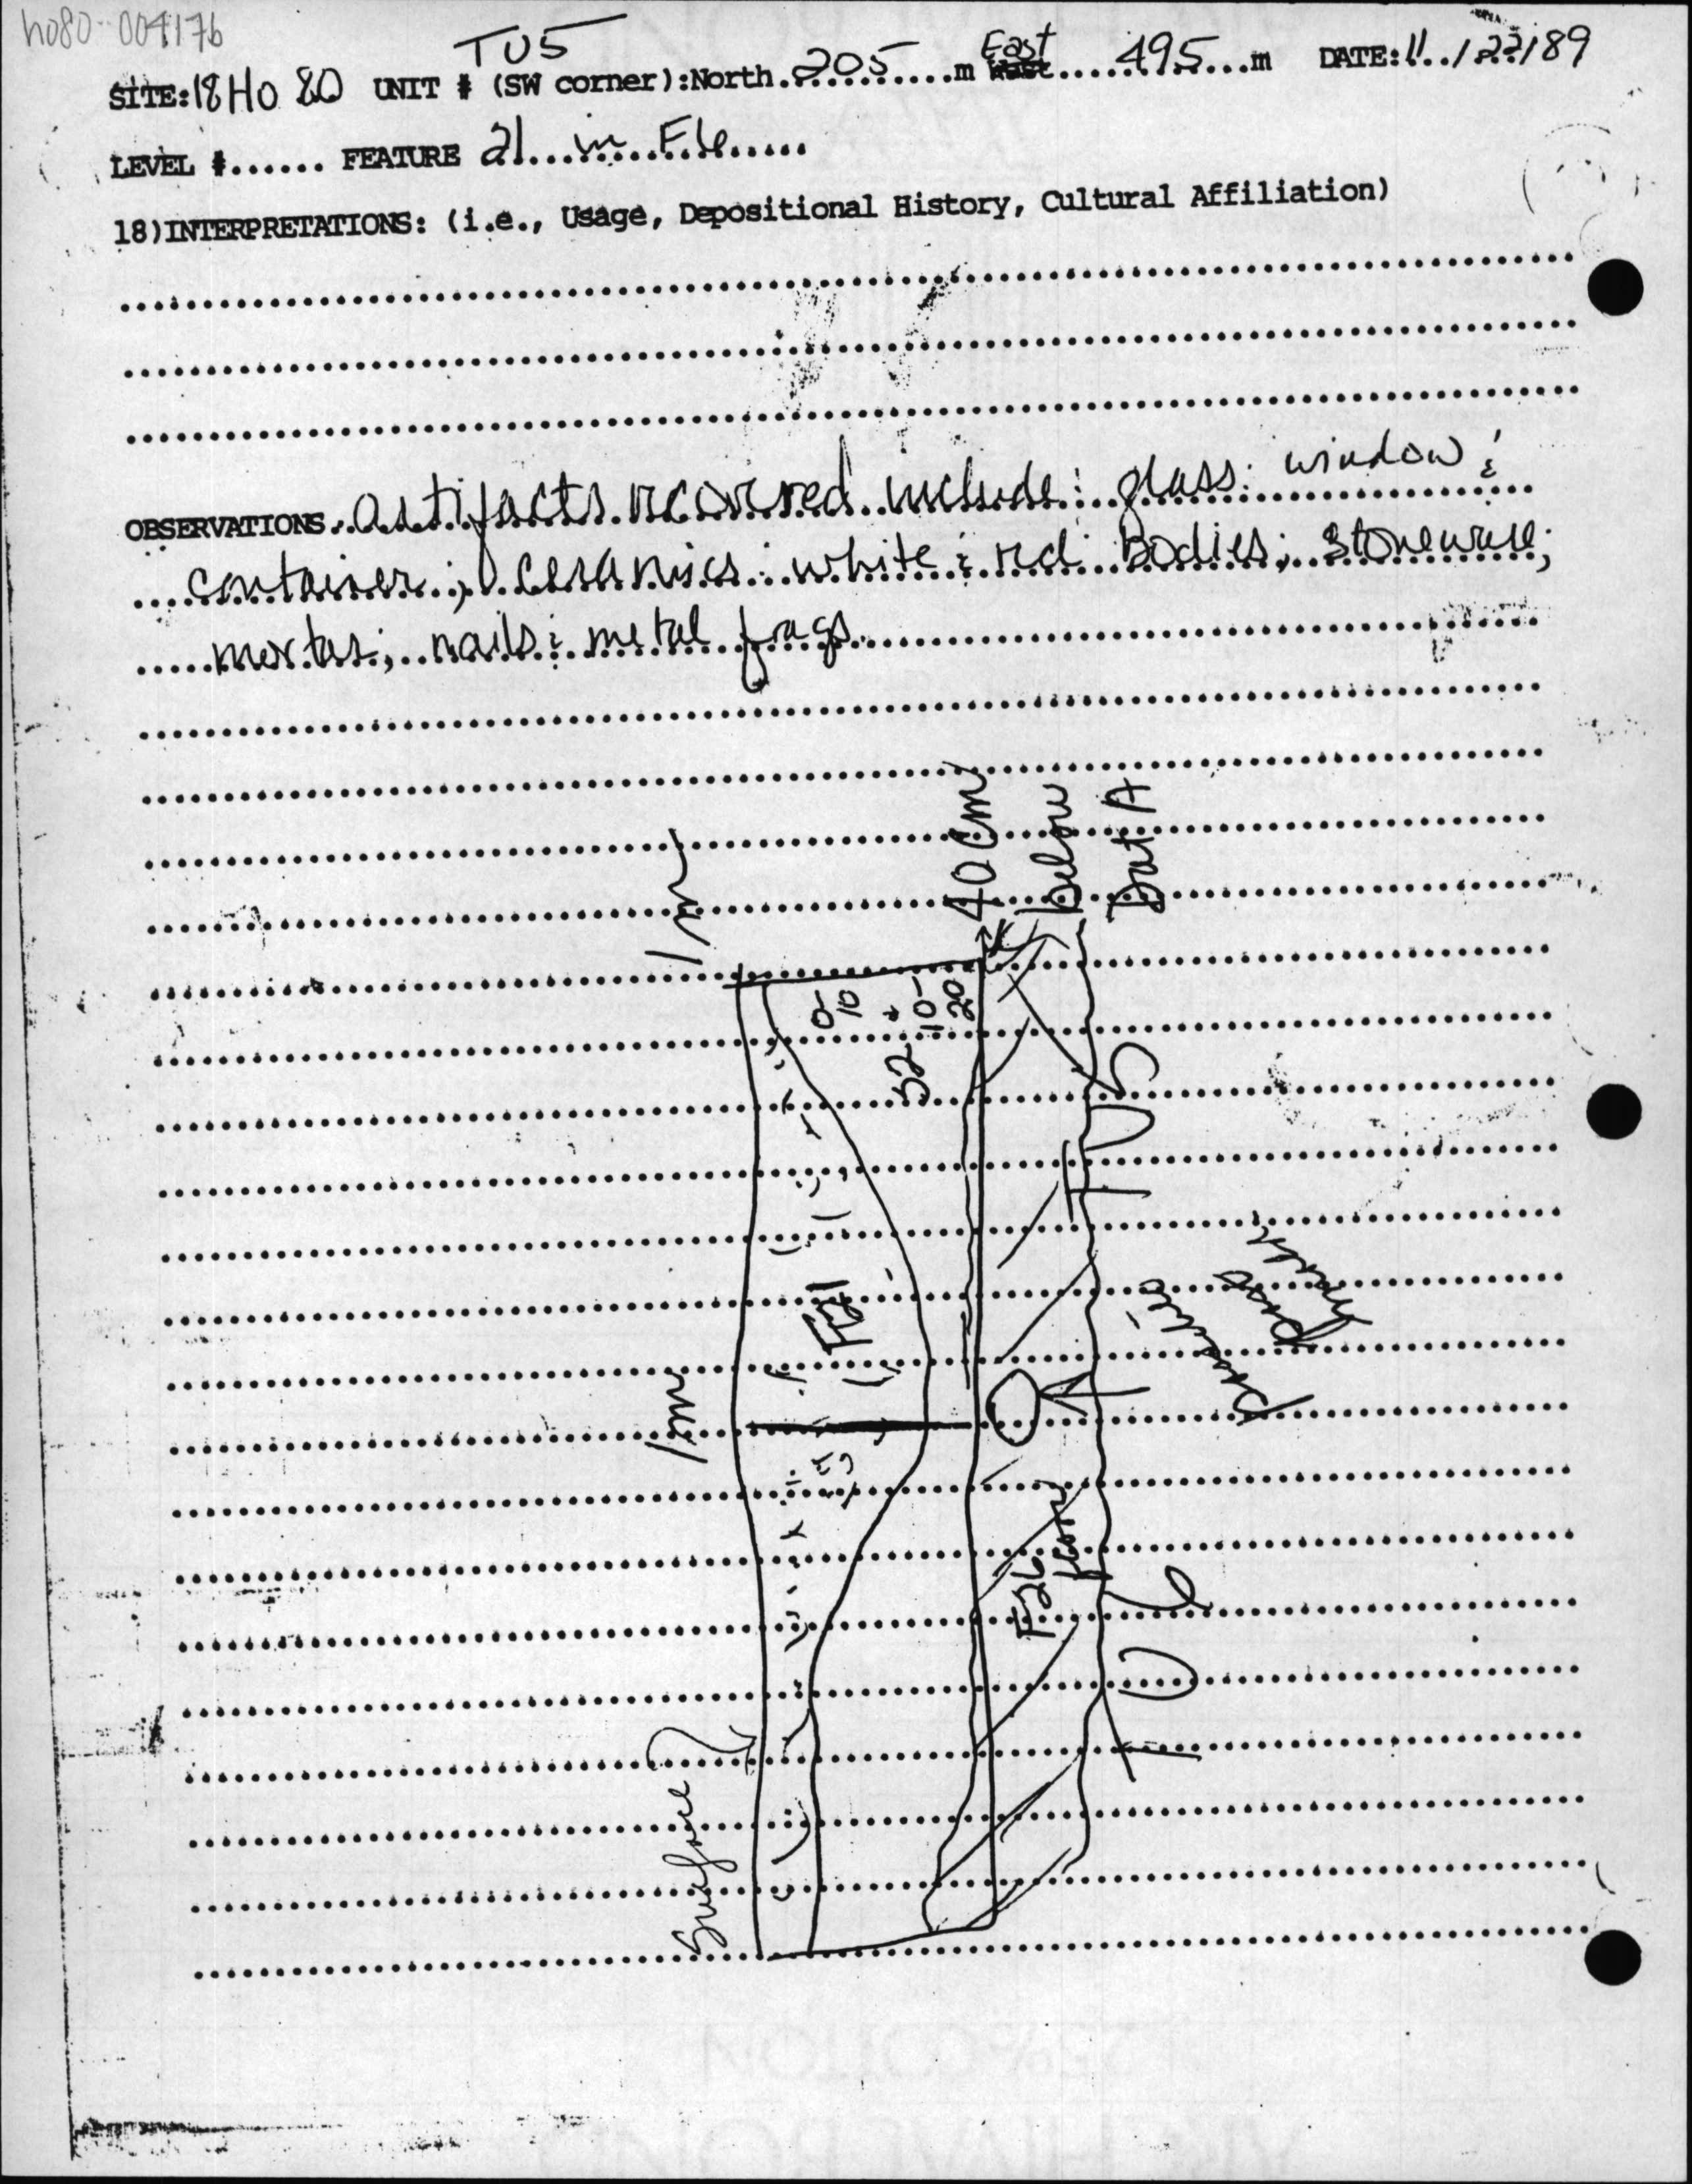 ho80-004176
TU5
SITE:18Ho 80 UNIT # (SW corner):North.205.....m East.....495...m DATE:11../22/89
LEVEL #...... FEATURE 21...in..F16.....
18)INTERPRETATIONS: (i.e., Usage, Depositional History, Cultural Affiliation)
OBSERVATIONS..artifacts recovered include: glass: window &
container; ceramics: white & red Bodies; stoneware;
mortar; nails & metal frags.
1m
40cm
below
Dat A
0-
10
+
10-
20
F21
1m
F26
Surface